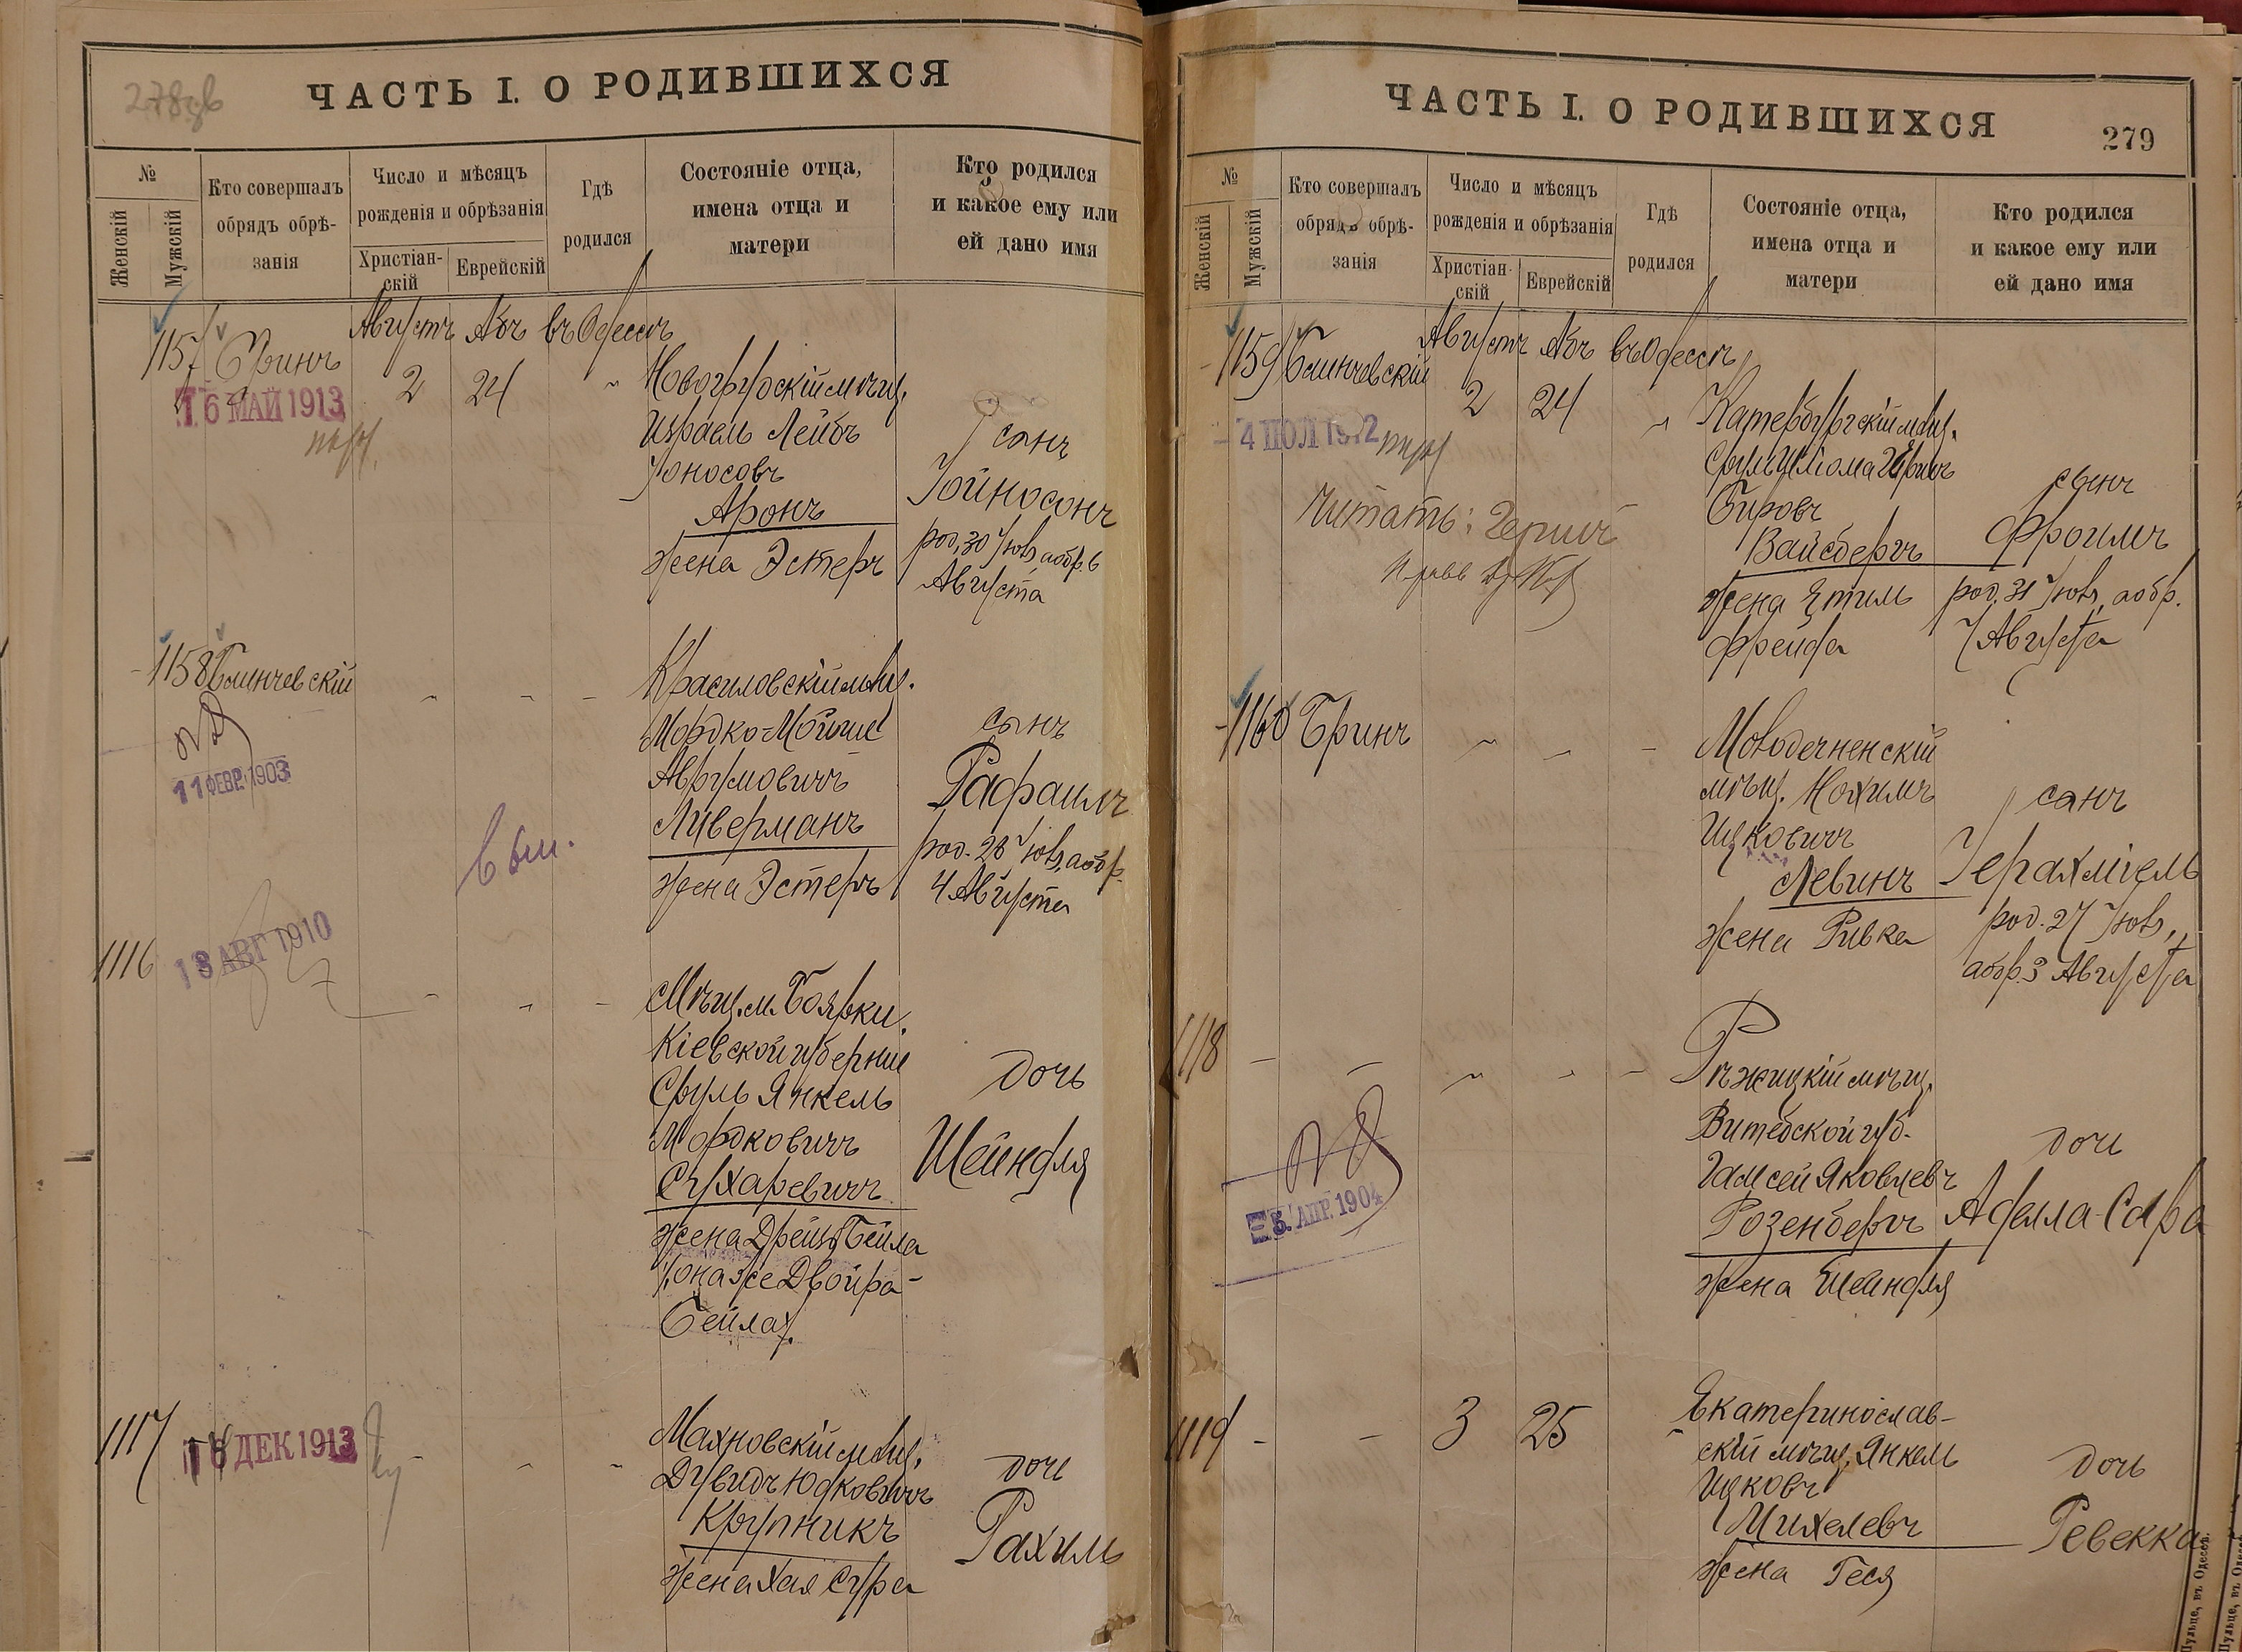 278об
ЧАСТЬ I. О РОДИВШИХСЯ
№
Женскій
Мужскій
Кто совершалъ
обрядъ обрѣ-
занія
Число и мѣсяцъ
рожденія и обрѣзанія
Христіан-
скій
Еврейскій
Гдѣ
родился
Состояніе отца,
имена отца и
матери
Кто родился
и какое ему или
ей дано имя
Августъ Абъ въ Одессѣ
1157 Бринъ 2 24
16 МАЙ 1913
Израель Лейбъ
Іоносовъ
Аронъ
жена Эстеръ
сынъ
Іойносонъ
род. 30 Іюля, а обр. 6
Августа
1158 Блинчевскій
11 ФЕВР. 1903
Красиловскій мѣщ.
Мордко-Мойше
Аврумовичъ
Ливерманъ
жена Эстеръ
сынъ
Рафаилъ
род. 28 Іюля, а обр.
4 Августа
вып.
1116
13 АВГ 1910
Мѣщ. м. Боярки
Кіевской губерніи
Сруль Янкель
Мордковичъ
Сухаревичъ
жена Дрейзя Бейла
(она же Двойра-
Бейла).
дочь
Шейндля
1117
16 ДЕК 1913
Махновскій мѣщ.
Дувидъ Юдковичъ
Крупникъ
жена Хая Сура
дочь
Рахиль
ЧАСТЬ I. О РОДИВШИХСЯ
279
№
Женскій
Мужскій
Кто совершалъ
обрядъ обрѣ-
занія
Число и мѣсяцъ
рожденія и обрѣзанія
Христіан-
скій
Еврейскій
Гдѣ
родился
Состояніе отца,
имена отца и
матери
Кто родился
и какое ему или
ей дано имя
Августъ Абъ въ Одессѣ
1159 Блинчевскій 2 24
4 ІЮЛ 1912
Читать: Гершъ
Катербургскій мѣщ.
Сруль Шлома Гершъ
Бировъ
Вайсбергъ
жена Этиль
Фрейда
сынъ
Фроимъ
род. 31 Іюля, а обр.
7 Августа
1160 Бринъ
Молодечненскій
мѣщ. Нохимъ
Ицковичъ
Левинъ
жена Ривка
сынъ
Іерахміель
род. 27 Іюля,
а обр. 3 Августа
1118
5. АПР. 1904
Рѣжицкій мѣщ.
Витебской губ.
Яковлевъ
Розенбергъ
жена Шейндля
дочь
Аделла-Сара
1119 3 25
Екатеринослав-
скій мѣщ. Янкель
Ицковъ
Михелевъ
жена Геся
дочь
Ревекка